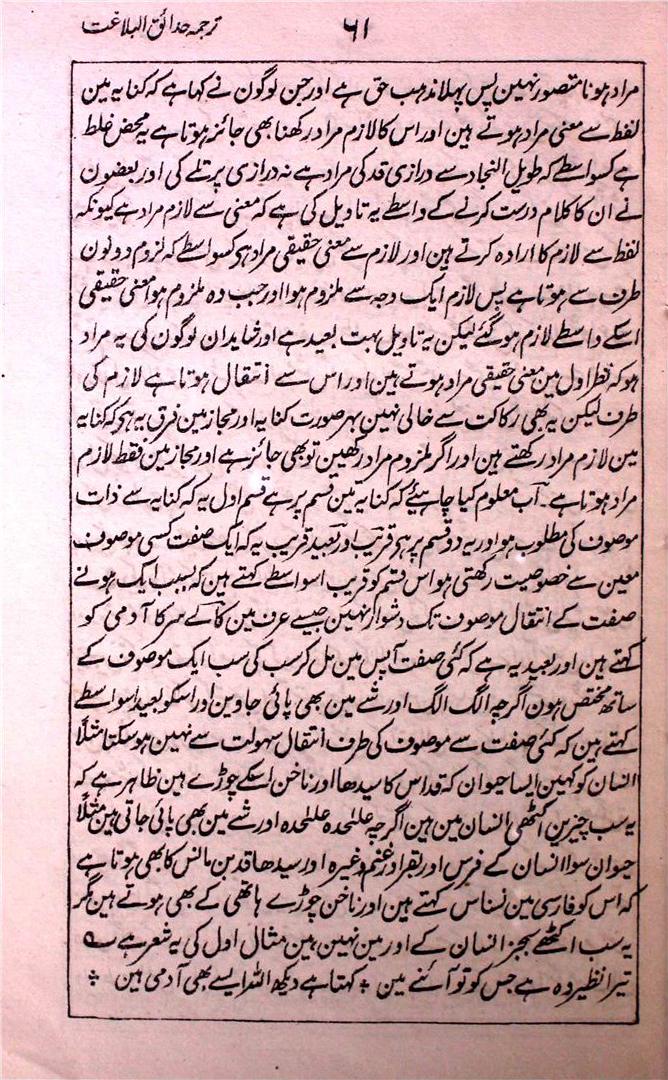 ترجمہ حدائق البلاغت
۶۱
مراد ہونا متصور نہین پس پہلا مذہب حق ہے اور جن لوگون نے کہا ہے کہ کنایہ مین
لفظ سے معنی مراد ہوتے ہین اور اس کا لازم مراد رکھنا بھی جائز ہوتا ہے یہ محض غلط
ہے کسواسطے کہ طویل النجاد سے درازی قد کی مراد ہے نہ درازی پرتلے کی اور بعضون
نے ان کا کلام درست کرنے کے واسطے یہ تاویل کی ہے کہ معنی سے لازم مراد ہے کیونکہ
لفظ سے لازم کا ارادہ کرتے ہین اور لازم سے معنی حقیقی مراد ہی کسواسطے کہ لزوم دونون
طرف سے ہوتا ہے پس لازم ایک وجہ سے ملزوم ہوا اور جب وہ ملزوم ہوا معنی حقیقی
اسکے واسطے لازم ہو گئے لیکن یہ تاویل بہت بعید ہے اور شاید ان لوگون کی یہ مراد
ہو کہ نظر اول مین معنی حقیقی مراد ہوتے ہین اور اس سے انتقال ہوتا ہے لازم کی
طرف لیکن یہ بھی رکاکت سے خالی نہین بہر صورت کنایہ اور مجاز مین فرق یہ ہی کہ کنایہ
مین لازم مراد رکھتے ہین اور اگر ملزوم مراد رکھین تو بھی جائز ہے اور مجاز مین فقط لازم
مراد ہوتا ہے۔ اب معلوم کیا چاہیئے کہ کنایہ تین قسم پر ہے قسم اول یہ کہ کنایہ سے ذات
موصوف کی مطلوب ہو اور یہ دو قسم پر ہی قریب اور بعید قریب یہ کہ ایک صفت کسی موصوف
معین سے خصوصیت رکھتی ہو اس قسم کو قریب اسواسطے کہتے ہین کہ بسبب ایک ہونے
صفت کے انتقال موصوف تک دشوار نہین جیسے عرف مین کالے سر کا آدمی کو
کہتے ہین اور بعید یہ ہے کہ کئی صفت آپس مین مل کر سب کی سب ایک موصوف کے
ساتھ مختص ہون اگرچہ الگ الگ اور شے مین بھی پائی جاوین اور اسکو بعید اسواسطے
کہتے ہین کہ کئی صفت سے موصوف کی طرف انتقال سہولت سے نہین ہو سکتا مثلاً
انسان کو کہین ایسا حیوان کہ قد اس کا سیدھا اور ناخن اسکے چوڑے ہین ظاہر ہے کہ
یہ سب چیزین اکٹھی انسان مین ہین اگرچہ علیٰحدہ علیٰحدہ اور شے مین بھی پائی جاتی ہین مثلاً
حیوان سوا انسان کے فرس اور بقر اور غنم وغیرہ اور سیدھا قد بن مانس کا بھی ہوتا ہے
کہ اس کو فارسی مین نسناس کہتے ہین اور ناخن چوڑے ہاتھی کے بھی ہوتے ہین مگر
یہ سب اکٹھے بجز انسان کے اور مین نہین ہین مثال اول کی یہ شعر ہے ؎
تیرا نظیر وہ ہے جس کو تو آئنے مین ٭ کہتا ہے دیکھ اللہ ایسے بھی آدمی ہین ٭